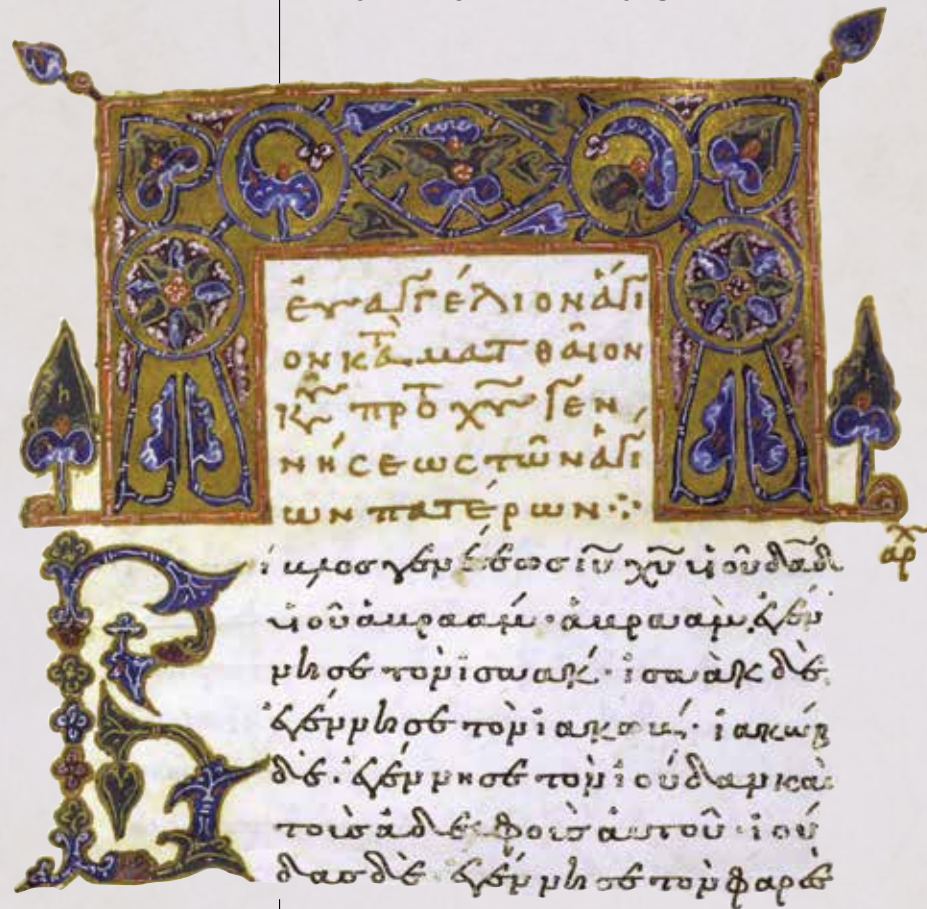 ἐυαγγέλιον ἅγι
ον κατ̀ ματθαῖον
κυ πρὸ τ χυ γεν
νήσεως τῶν ἁγί
ων πατέρων ⁘
αρχ
Βίβλος γενέσεως ἰῦ χῦ υἱοῦ δαδ
υἱοῦ ἀβραάμ· ἀβραὰμ ἐγέν
νησε τὸν ἰσαάκ· ἰσαὰκ δὲ
ἐγέννησε τὸν ἰακώβ· ἰακὼβ
δὲ ἐγέννησε τὸν ἰούδαν καὶ
τοὺς ἀδελφοὺς αὐτοῦ· ἰού
δας δὲ ἐγέννησε τὸν φαρὲς